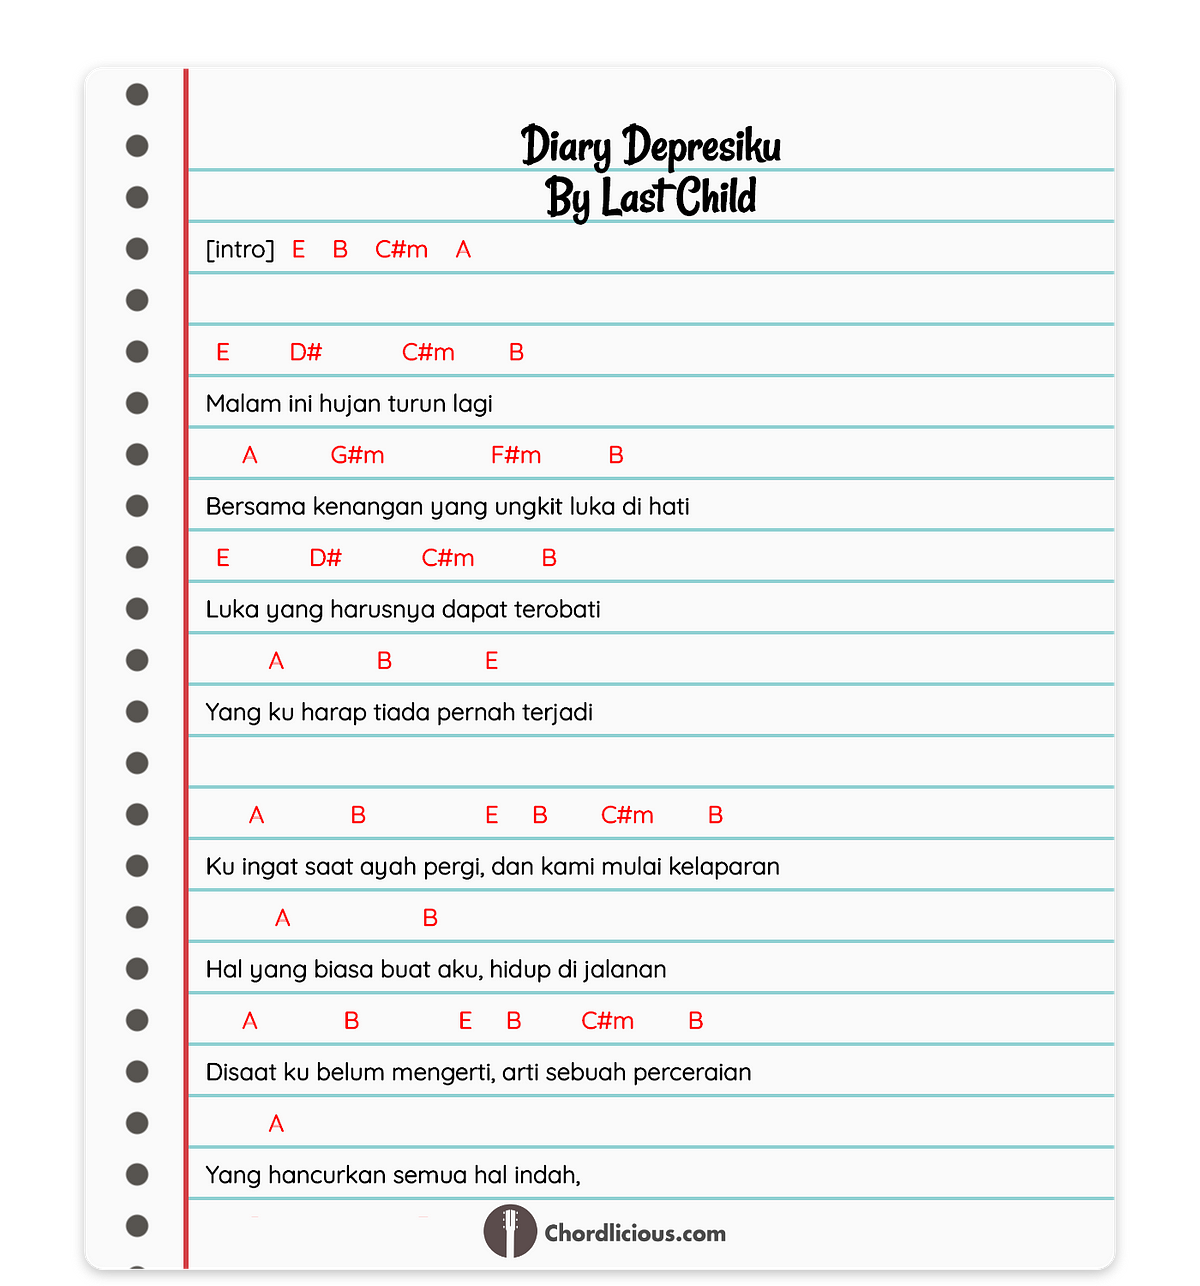 Diary Depresiku
By Last Child
[intro] E B C#m A
E D# C#m B
Malam ini hujan turun lagi
A G#m F#m B
Bersama kenangan yang ungkit luka di hati
E D# C#m B
Luka yang harusnya dapat terobati
A B E
Yang ku harap tiada pernah terjadi
A B E B C#m B
Ku ingat saat ayah pergi, dan kami mulai kelaparan
A B
Hal yang biasa buat aku, hidup di jalanan
A B E B C#m B
Disaat ku belum mengerti, arti sebuah perceraian
A
Yang hancurkan semua hal indah,
Chordlicious.com